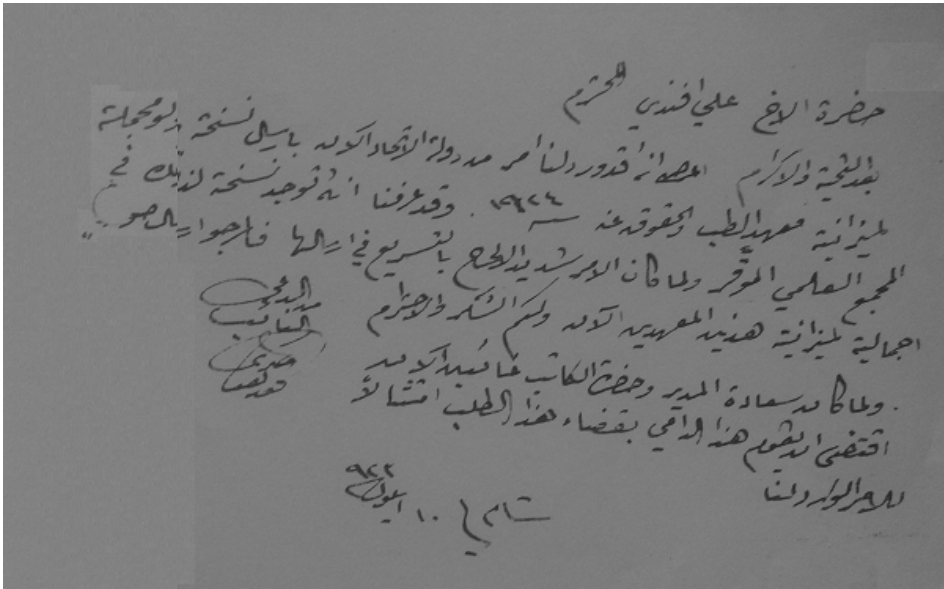 حضرة الاخ علي افندي المحترم
بعد التحية والاكرام اعرض انه قد ورد لنا امر من دولة الاتحاد الآن بارسال نسخة ولو مجملة
لميزانية معهد الطب والحقوق عن سنة . وقد عرفنا انه توجد نسخة لذلك في
المجمع العلمي الموقر ولما كان الامر شديد الالحاح بالتسريع في ارسالها فارجو ارسال
اجمالية لميزانية هذين المعهدين الآن ولكم الشكر والاحترام
ولما كان سعادة المدير وحضرة الكاتب غائبين الآن
اقتضى ان يقوم هذا الداعي بقضاء هذا الطلب امتثالاً
للامر الوارد لنا
١٠ ايلول ٩٢٣
الداعي